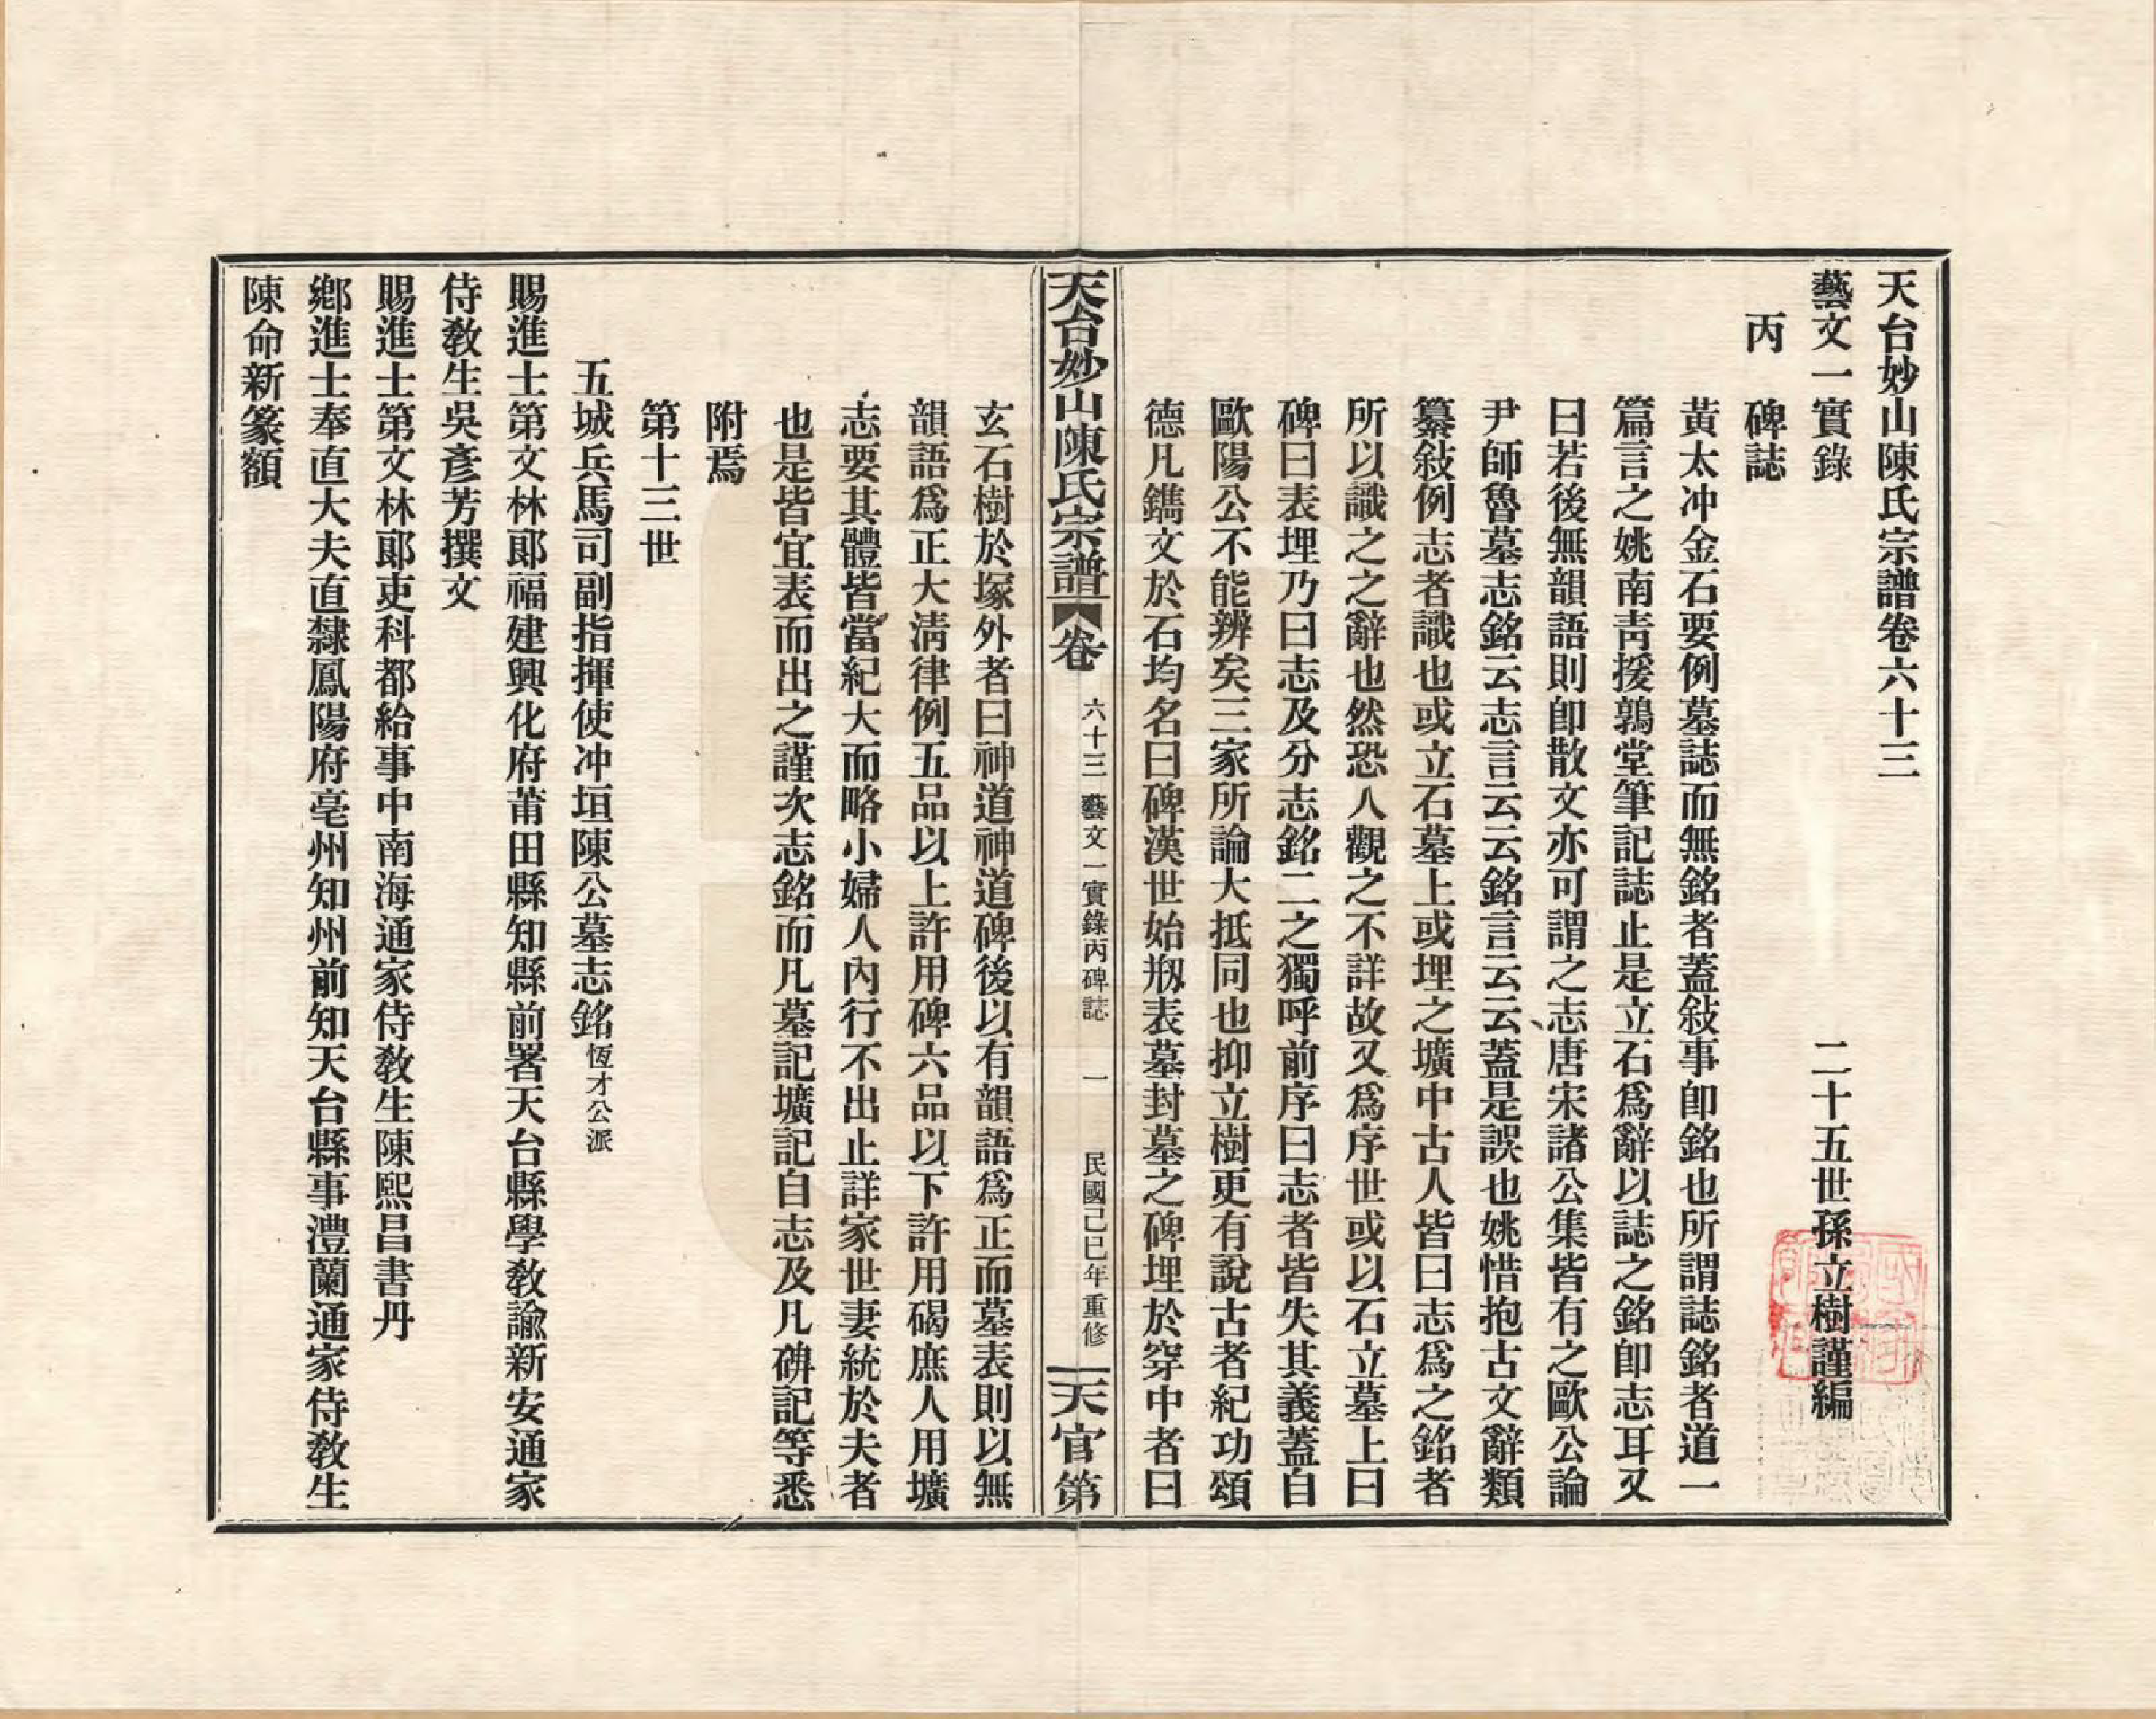 天台妙山陳氏宗譜卷六十三
藝文一實錄　二十五世孫立樹謹編
丙　碑誌
黃太冲金石要例墓誌而無銘者蓋敍事卽銘也所謂誌銘者道一
篇言之姚南靑援鶉堂筆記誌止是立石爲辭以誌之銘卽志耳又
曰若後無韻語則卽散文亦可謂之志唐宋諸公集皆有之歐公論
尹師魯墓志銘云志言云云銘言云云蓋是誤也姚惜抱古文辭類
纂敍例志者識也或立石墓上或埋之壙中古人皆曰志爲之銘者
所以識之之辭也然恐人觀之不詳故又爲序世或以石立墓上曰
碑曰表埋乃曰志及分志銘二之獨呼前序曰志者皆失其義蓋自
歐陽公不能辨矣三家所論大抵同也抑立樹更有說古者紀功頌
德凡鐫文於石均名曰碑漢世始剏表墓封墓之碑埋於穿中者曰
天台妙山陳氏宗譜　卷　六十三　藝文一實錄丙碑誌　一　民國己巳年重修　天官第
玄石樹於塚外者曰神道神道碑後以有韻語爲正而墓表則以無
韻語爲正大淸律例五品以上許用碑六品以下許用碣庶人用壙
志要其體皆當紀大而略小婦人內行不出止詳家世妻統於夫者
也是皆宜表而出之謹次志銘而凡墓記壙記自志及凡碑記等悉
附焉
第十三世
五城兵馬司副指揮使冲垣陳公墓志銘恆才公派
賜進士第文林郎福建興化府莆田縣知縣前署天台縣學敎諭新安通家
侍敎生吳彥芳撰文
賜進士第文林郎吏科都給事中南海通家侍敎生陳熙昌書丹
鄉進士奉直大夫直隸鳳陽府亳州知州前知天台縣事澧蘭通家侍敎生
陳命新篆額